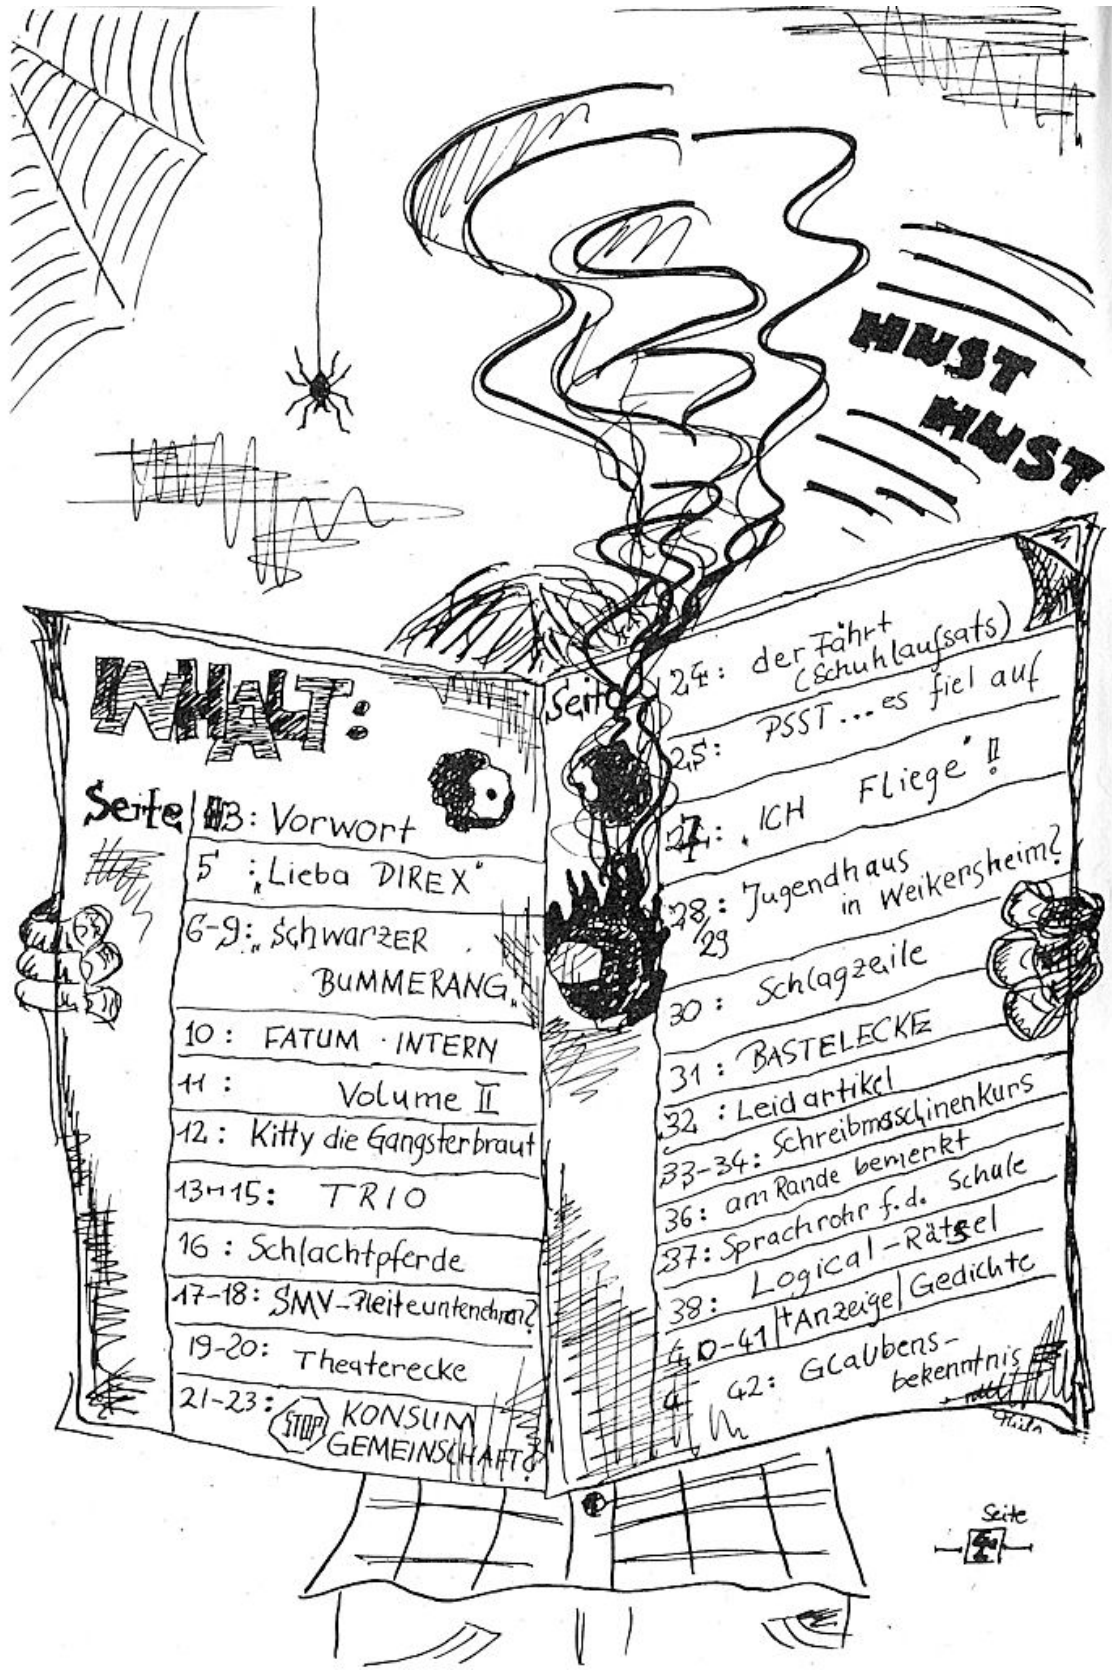 HUST
HUST
INHALT:
Seite
3: Vorwort
5: „Lieba DIREX“
6-9: „SchwarzER
BUMMERANG„
10: FATUM · INTERN
11: Volume II
12: Kitty die Gangsterbraut
13-15: TRIO
16: Schlachtpferde
17-18: SMV-Pleiteunternehmen?
19-20: Theaterecke
21-23: STOP KONSUM
GEMEINSCHAFT?
Seite
24: der Fährt
(Schuhlaufsats)
25: PSST...es fiel auf
27: „ICH Fliege“!!
28/29: Jugendhaus
in Weikersheim?
30: Schlagzeile
31: BASTELECKE
32: Leidartikel
33-34: Schreibmaschinenkurs
36: am Rande bemerkt
37: Sprachrohr f.d. Schule
38: Logical-Rätsel
40-41 + Anzeige | Gedichte
42: Glaubens-
bekenntnis
Seite